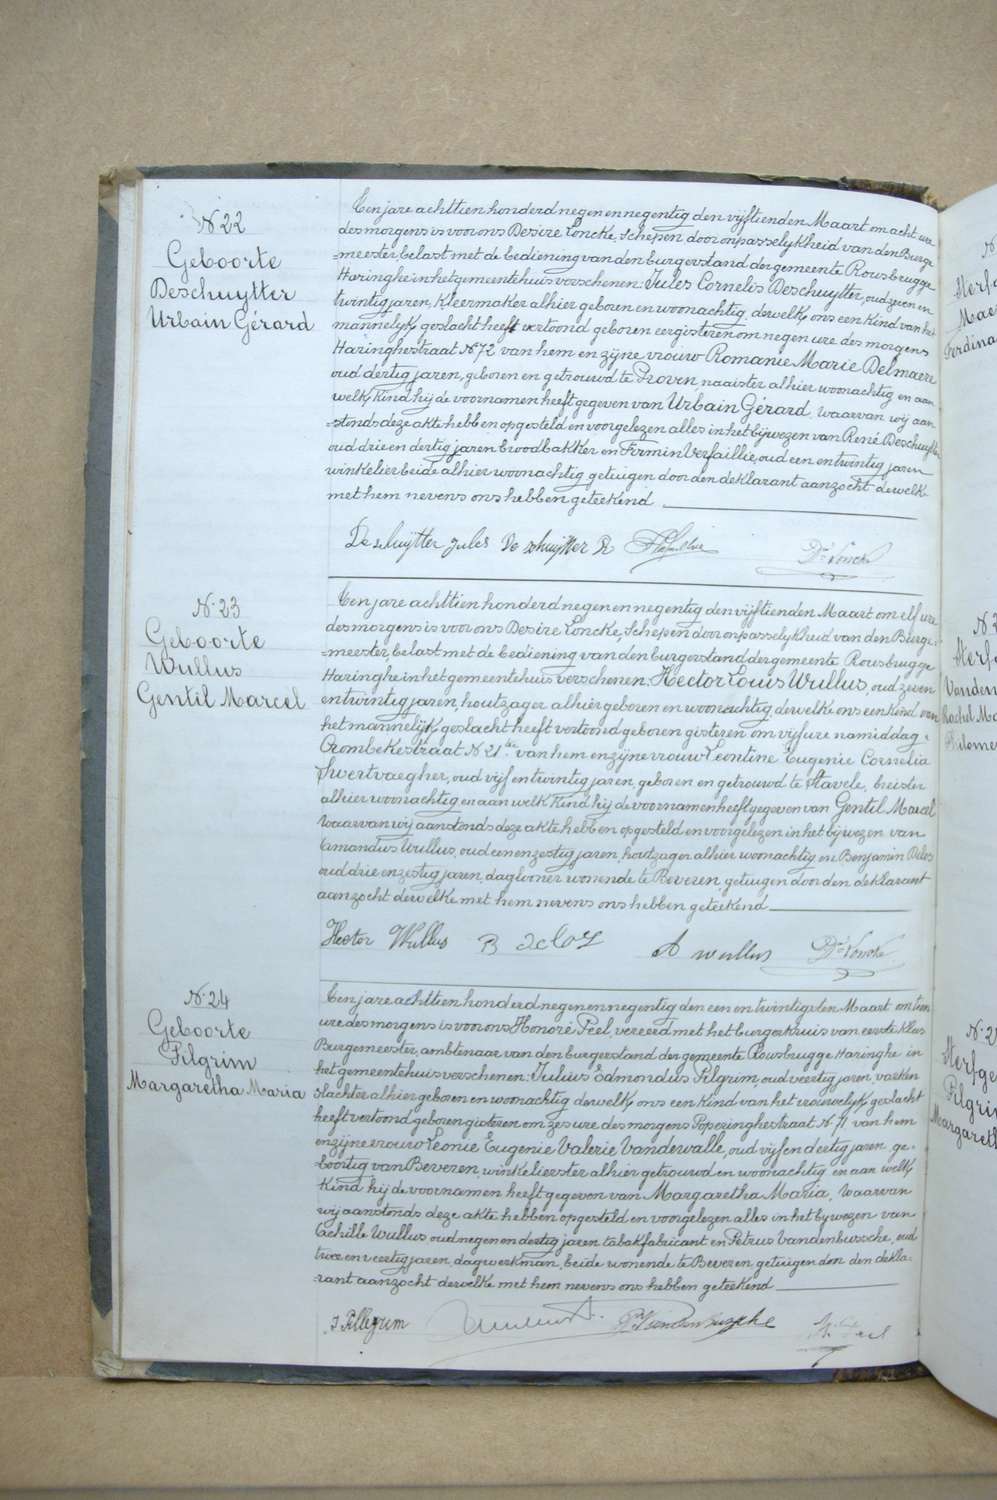 N. 22
Geboorte
Deschuytter
Urbain Gérard
Ten jare achttien honderd negen en negentig den vijftienden Maart om acht ure
des morgens is voor ons Desire Loncke, Schepen door onpasselykheid van den Burge
=meester, belast met de bediening van den burgerstand der gemeente Rousbrugge
Haringhe in het gemeentehuis verschenen: Jules Cornelis Deschuytter, oud zeven en
twintig jaren, Kleermaker alhier geboren en woonachtig, dewelke ons een Kind van het
mannelijk geslacht heeft vertoond geboren eergisteren om negen ure des morgens
Haringhestraat N. 72 van hem en zijne vrouw Romanie Marie Delmaere
oud dertig jaren, geboren en getrouwd te Proven, naaister alhier woonachtig en aan
welk Kind hij de voornamen heeft gegeven van Urbain Gérard, waarvan wij aan
=stonds deze akte hebben opgesteld en voorgelezen alles in het bijwezen van René Deschuytter
oud drie en dertig jaren broodbakker en Firmin Verfaillie, oud een en twintig jaren
winkelier beide alhier woonachtig getuigen door den deklarant aanzocht dewelke
met hem nevens ons hebben geteekend
De schuytter Jules De schuytter R
N. 23
Geboorte
Wullus
Gentil Marcel
Ten jare achttien honderd negen en negentig den vijftienden Maart om elf ure
des morgens is voor ons Desire Loncke, Schepen door onpasselykheid van den Burge=
=meester, belast met de bediening van den burgerstand der gemeente Rousbrugge
Haringhe in het gemeentehuis verschenen: Hector Louis Wullus, oud zeven
en twintig jaren, houtzager alhier geboren en woonachtig, dewelke ons een Kind van
het mannelijk geslacht heeft vertoond geboren gisteren om vijf ure namiddag
Crombekestraat N. 21 van hem en zijne vrouw Leontine Eugenie Cornelia
Swertvaegher, oud vijf en twintig jaren, geboren en getrouwd te Stavele, breister
alhier woonachtig en aan welk Kind hij de voornamen heeft gegeven van Gentil Marcel
Waarvan wij aanstonds deze akte hebben opgesteld en voorgelezen in het bijwezen van
Amandus Wullus, oud een en zestig jaren, houtzager alhier woonachtig en Benjamin Delos
oud drie en zestig jaren, daglooner wonende te Beveren, getuigen door den deklarant
aanzocht dewelke met hem nevens ons hebben geteekend
Hector Wullus B Delos A wullus Dré Loncke
N. 24
Geboorte
Pilgrim
Margaretha Maria
Ten jare achttien honderd negen en negentig den een en twintigsten Maart om tien
ure des morgens is voor ons Honoré Peel, vereerd met het burgerkruis van eerste klas
Burgemeester, ambtenaar van den burgerstand der gemeente Rousbrugge Haringhe in
het gemeentehuis verschenen: Julius Edmondus Pilgrim, oud veertig jaren, varken
slachter alhier geboren en woonachtig dewelke ons een Kind van het vrouwelijk geslacht
heeft vertoond geboren gisteren om zes ure des morgens Poperinghestraat N. 71 van hem
en zijne vrouw Leonie Eugenie Valerie Vandewalle, oud vijf en dertig jaren ge-
boortig van Beveren, winkelierster alhier getrouwd en woonachtig en aan welk
Kind hij de voornamen heeft gegeven van Margaretha Maria, Waarvan
wij aanstonds deze akte hebben opgesteld en voorgelezen alles in het bijwezen van
Achille Wullus oud negen en dertig jaren tabakfabricant en Petrus Vandenbussche, oud
twee en veertig jaren, dagwerkman, beide wonende te Beveren getuigen door den dekla-
rant aanzocht dewelke met hem nevens ons hebben geteekend
J Pillegrim P Vandenbussche H. Peel